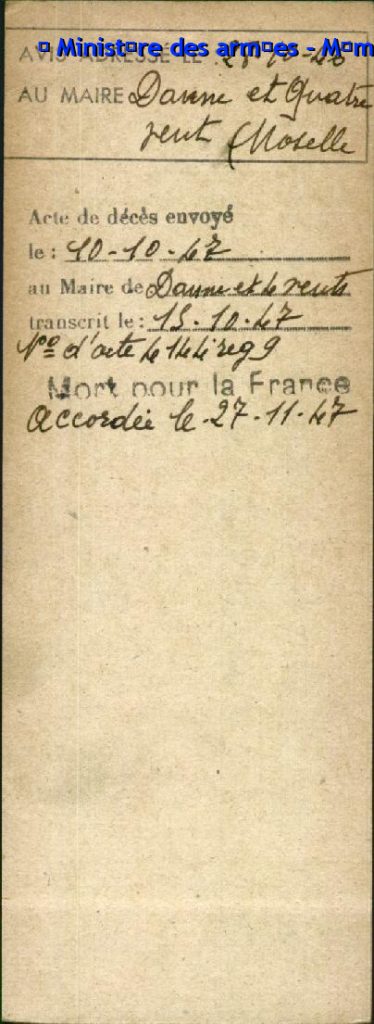 Ministère des armées - Mém
AVIS ADRESSÉ LE 28-10-46
AU MAIRE Danne et Quatre
vent (Moselle
Acte de décès envoyé
le : 10-10-47
au Maire de Danne et 4 vents
transcrit le : 15.10.47
No d'acte reg 9
Mort pour la France
Accordée le 27.11.47